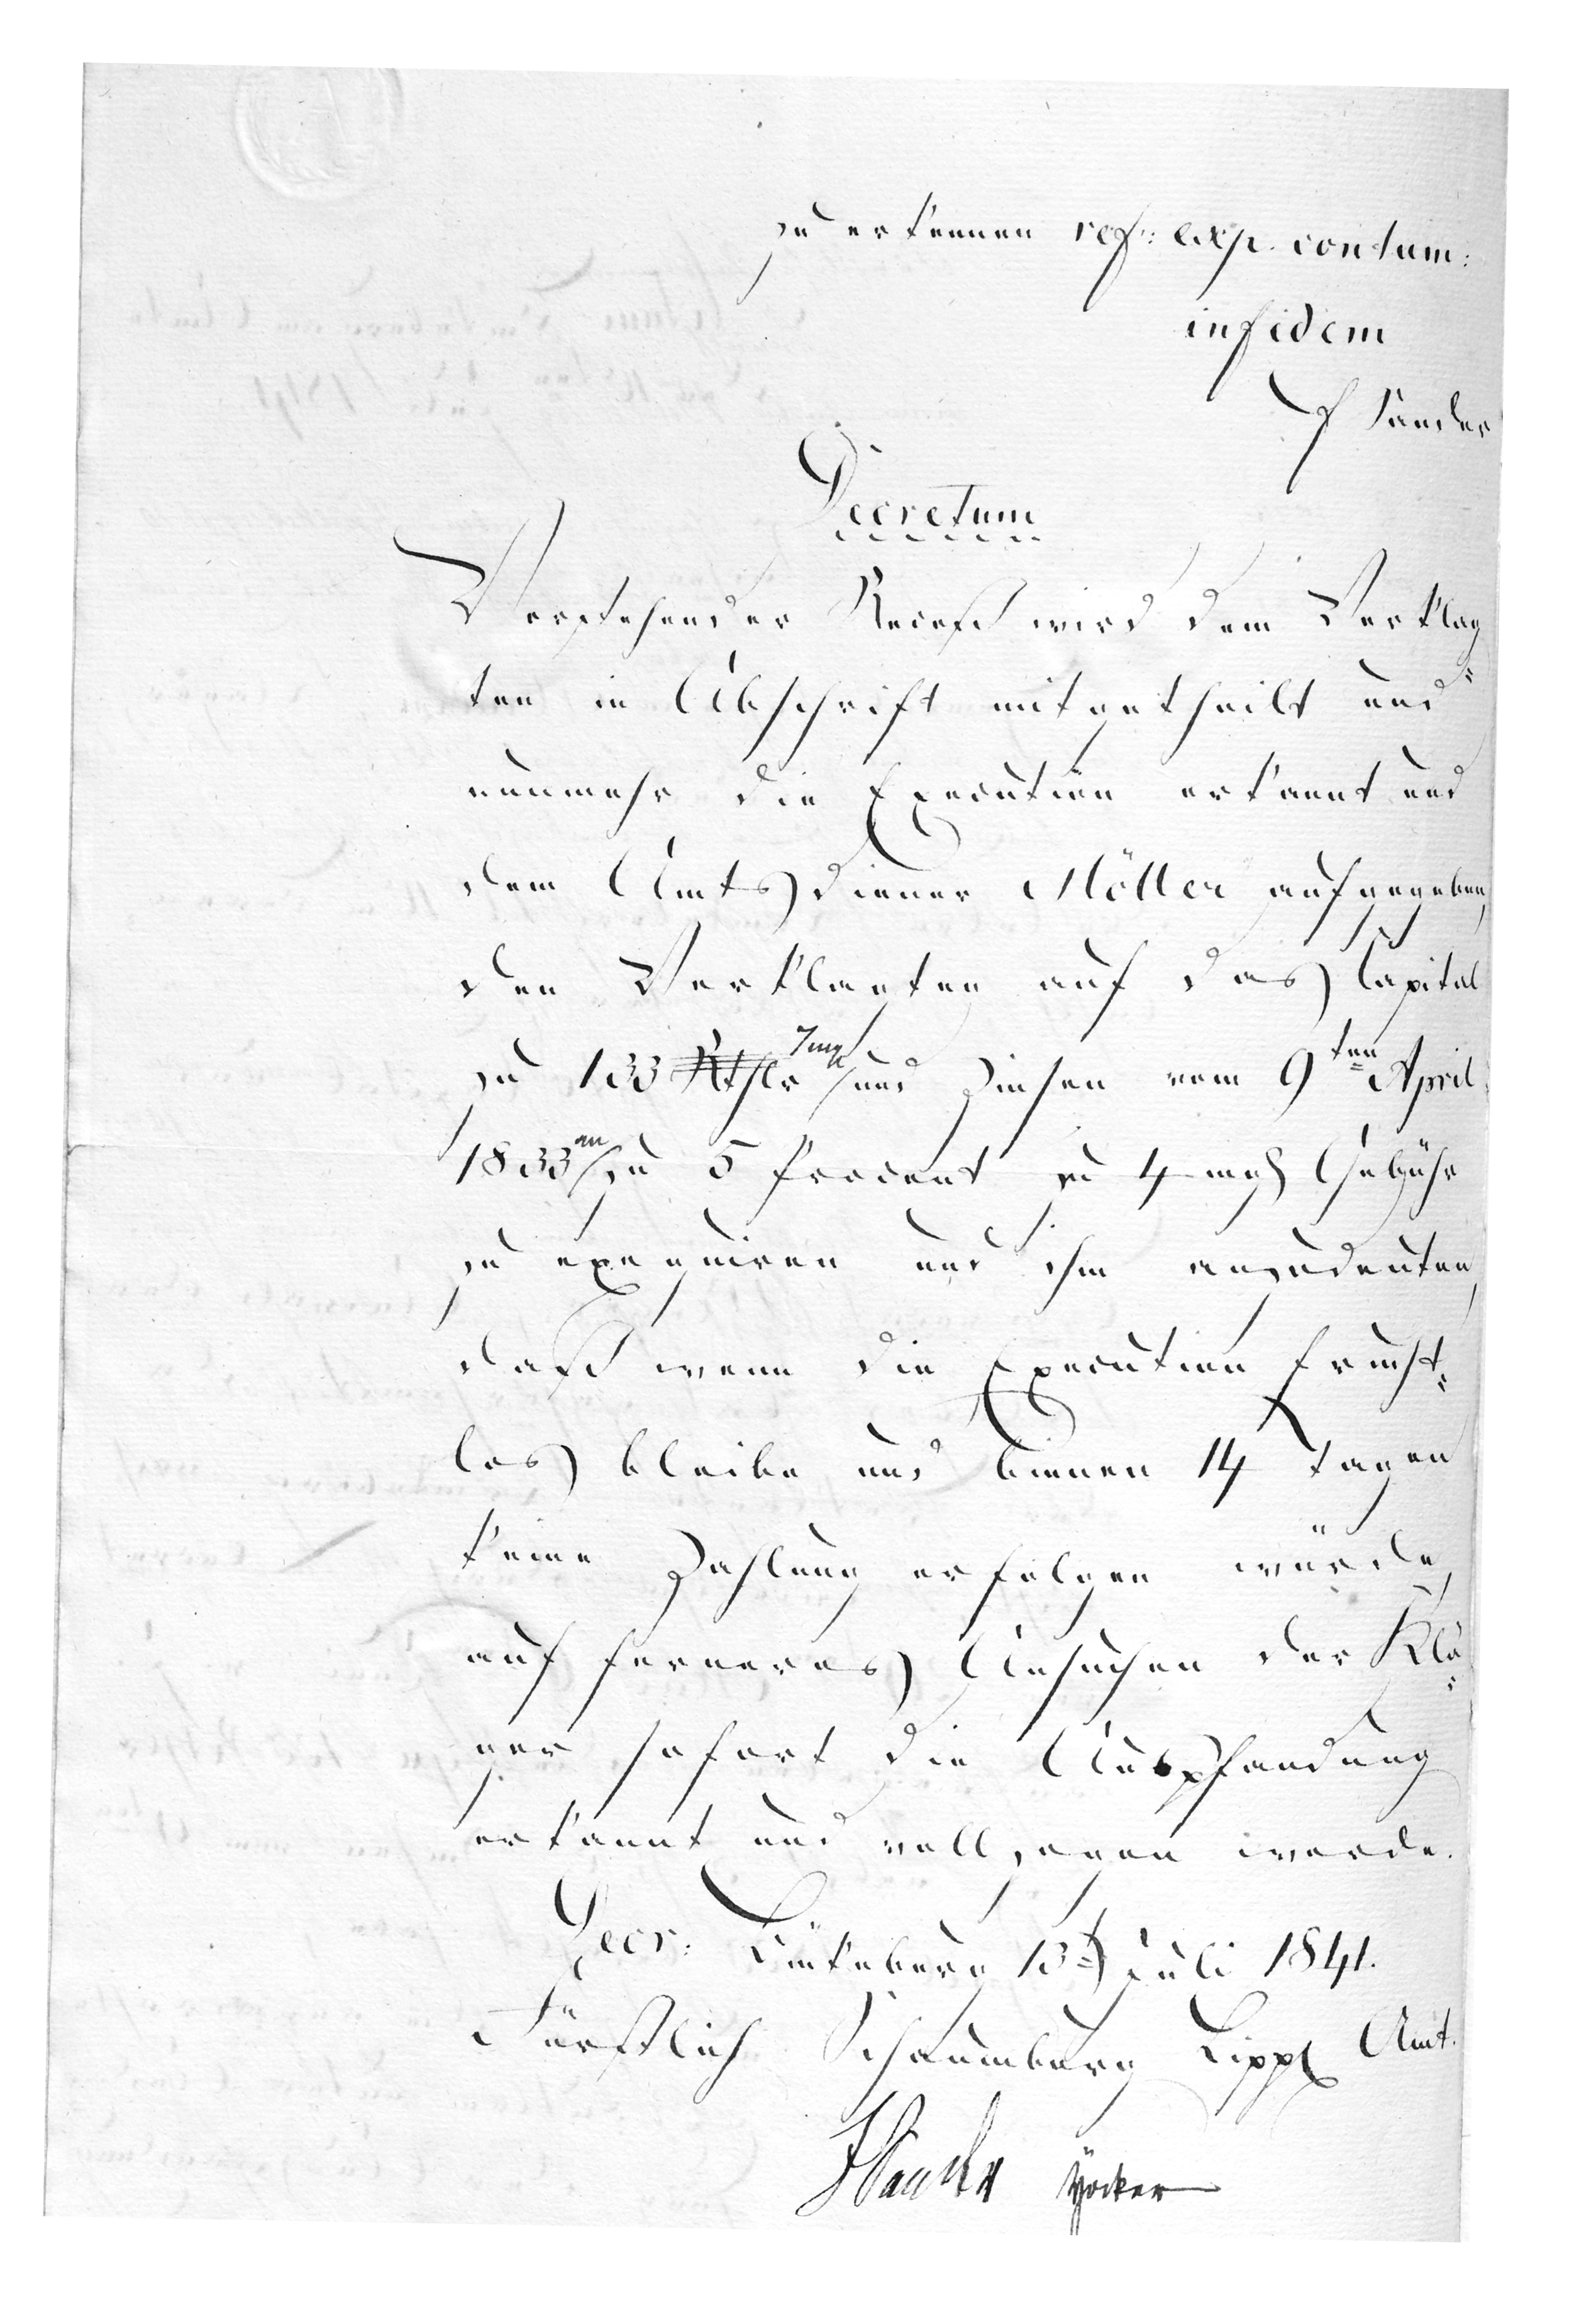 zu erkennen ref: exp. contum:
in fidem
F Sander
Decretum
Vorstehender Receß wird dem Verklag
ten in Abschrift mitgetheilt und
nunmehr die Execution erkannt und
dem Amtsdiener Möller aufgegeben,
den Verklagten auf das Capital
zu 133 Rthlr 7 mg und Zinsen vom 9ten April
1833 an zu 5 Procent zu 4 mgl Gebühr
zu exequiren und ihm anzudeuten,
daß wenn die Execution frucht=
los bleibe und binnen 14 Tagen
keine Zahlung erfolgen würde,
auf ferneres Ansuchen der Klä=
ger sofort die Auspfandung
erkannt und vollzogen werde.
Decr: Bückeburg 13t Juli 1841.
Fürstlich Schaumburg Lippl Amt.